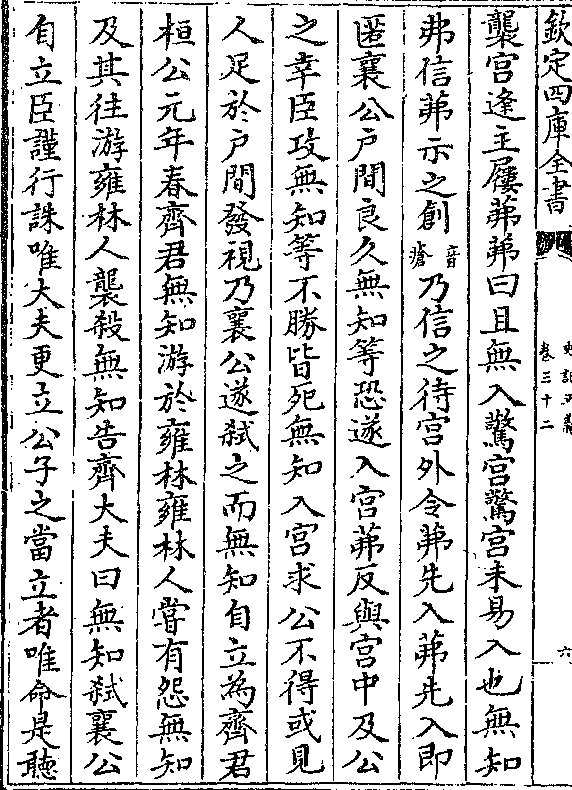 欽定四庫全書
史記正義
卷三十二
六
襲宮逢主屨茀茀曰且無入驚宮驚宮未易入也無知
弗信茀示之創音瘡乃信之待宮外令茀先入茀先入即
匿襄公戶間良久無知等恐遂入宮茀反與宮中及公
之幸臣攻無知等不勝皆死無知入宮求公不得或見
人足於戶間發視乃襄公遂弑之而無知自立為齊君
桓公元年春齊君無知游於雍林雍林人嘗有怨無知
及其往游雍林人襲殺無知告齊大夫曰無知弑襄公
自立臣謹行誅唯大夫更立公子之當立者唯命是聽